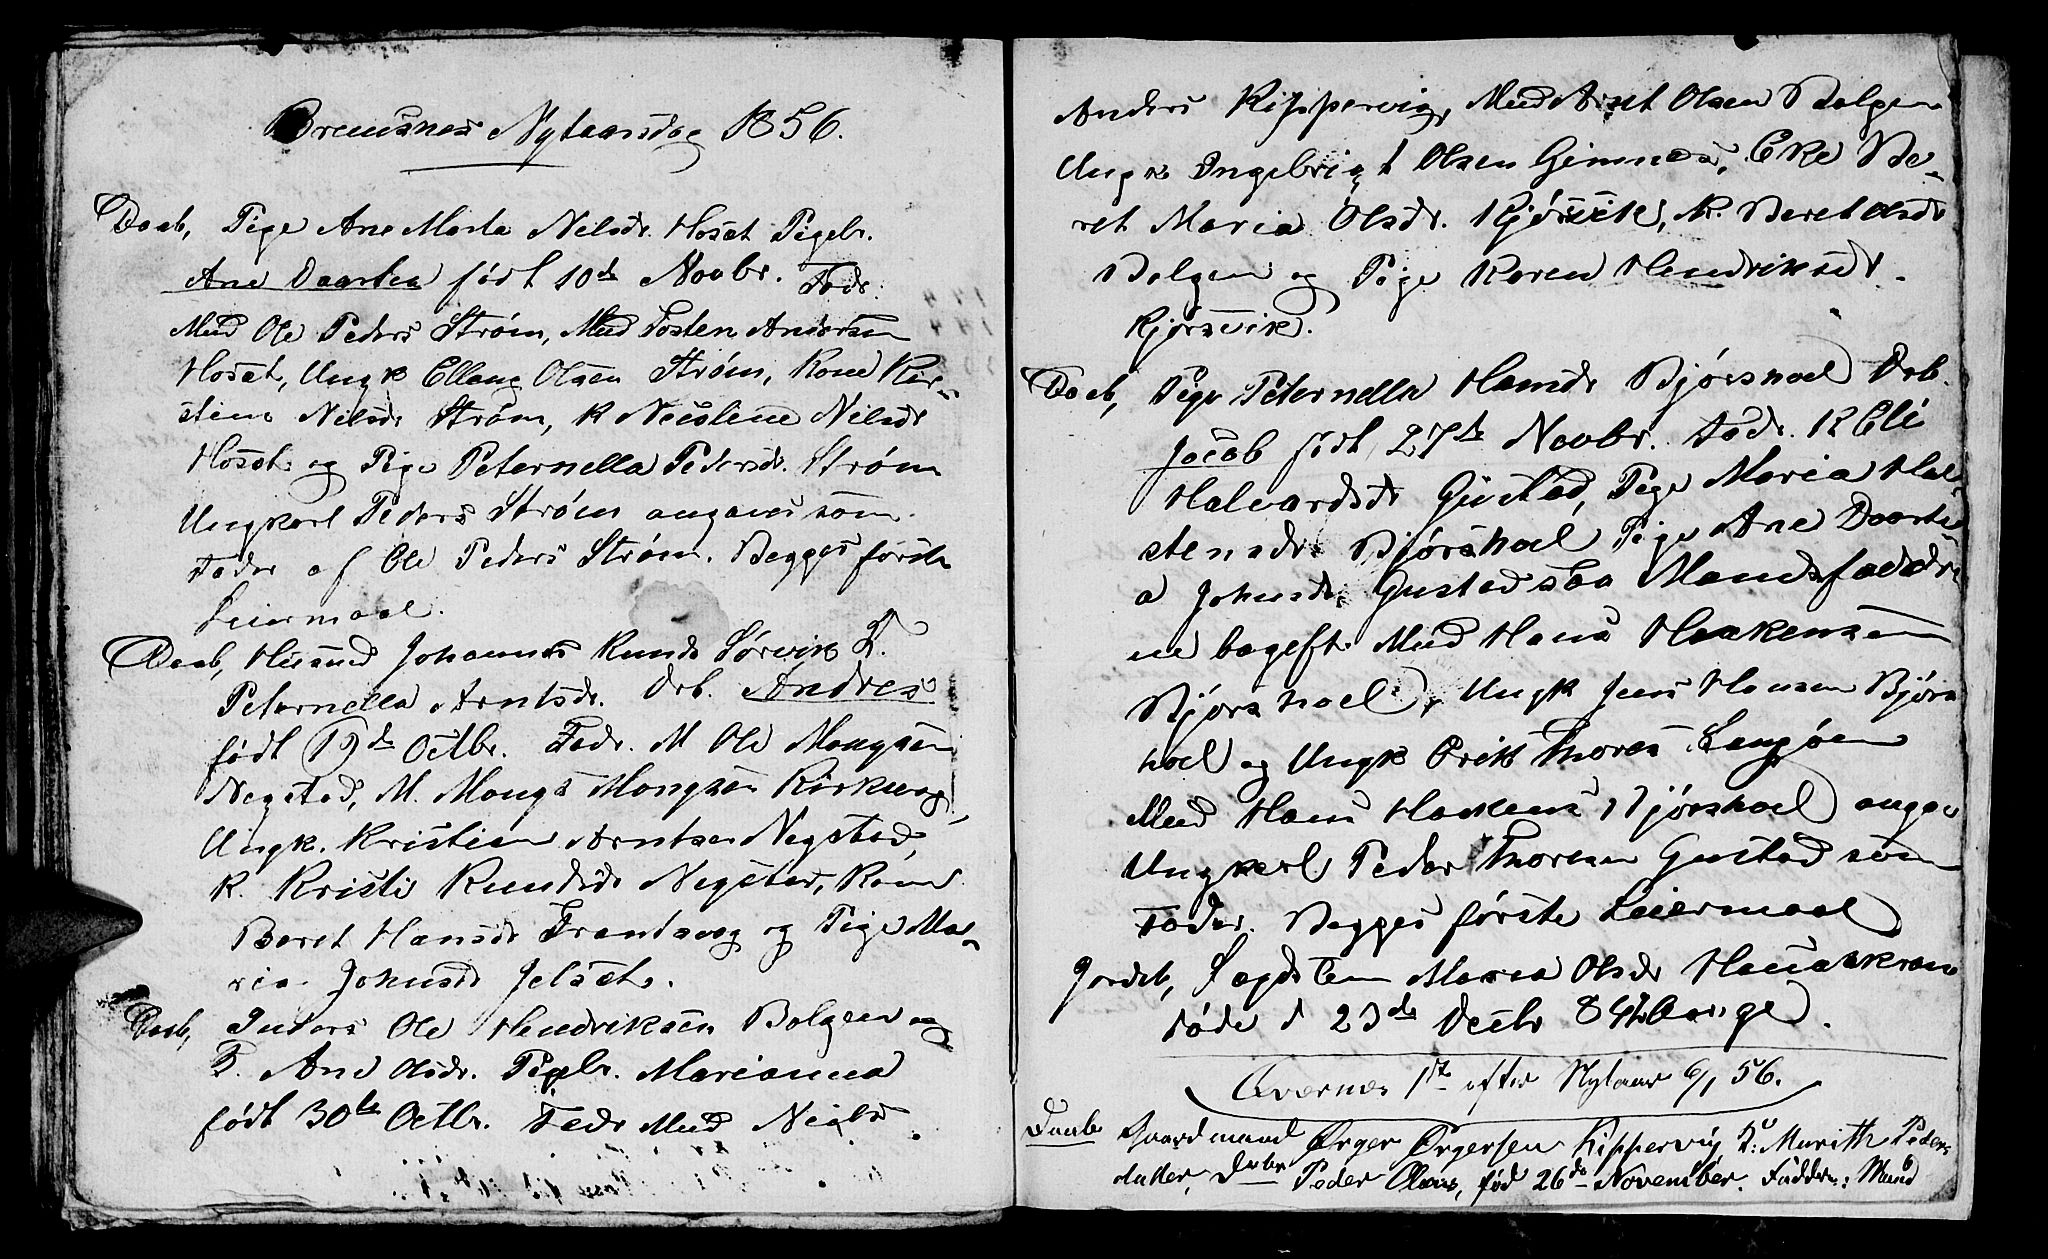 Bremsnes Nytaarsdag 1856.
Daab, Pige Ane Marta Nilsdr. Hosæt Pigebr.
Ane Daartea født 10de Novbr. Fadr.
Mand Ole Peders Strøm, Mand Tosten Andersen
Hosæt, Ungk Elling Olsen Strøm, Kone Kir-
stine Nilsdr Strøm, K Nilsdr
Hosæt og Pige Peternella Pedersdr. Strøm
Ungkarl Peders Strøm angaves som
Fader af Ole Peders Strøm. Begges første
Leiermaal.
Daab, Husmd Johannes Knuds Sørvik F.
Peternella Arntsdr. Drb. Andreas
født 19de Octbr. Fadr. M Ole Mongsen
Negstad, M. Mongs Mongsen Kirkvag,
Ungk. Kristian Arntsen Negstad,
K. Kristi Knudsdr Negstad, Kone
Beret Hansdr Frantsvag og Pige Ma-
ria Johnsd Jelsæt.
Daab, Inders Ole Hendriksen Bolgen og
F. Ane Olsdr. Pigbr. Marianna
født 30te Octbr. Fadr Mand
Anders Kippervig, Mand Arnt Olsen Bolgen
Ungk Ingebrigt Olsen Gimnes, Eke Be-
ret Maria Olsdr. Kjørsvik, K. Beret Olsdr
Bolgen og Pige Karen Hendriksdr.
Kjørsvik.
Daab, Pige Peternella Hansdr Bjørshoel Drb.
Jacob født 27de Novbr. Fadr. K Eli
Halvardsdr Gustad, Pige Maria Hal-
stensdr. Bjørshoel Pige Ane Daarte-
a Johnsdr. Gustad saa Mandsfaddr-
ne bageft. Mand Hans Haakensen
Bjørshoel, Ungk Jens Hansen Bjørs
hoel og Ungk Erik Thores Langøen
Mand Hans Haakens Bjørshoel angav
Ungkarl Peder Thoresen Gustad som
Fader. Begges første Leiermaal
Jordeb, Lægdslem Maria Olsdr
døde d 23de Decbr 84 Aar gl.
Qvernes 1st efter Nytaar 6/1 56.
Daab Gaardmand Ørger Ørgersen Kippervig, F: Marith Peders
datter, Drbr Peder Olaus, fød 26de November. Faddere: Mand